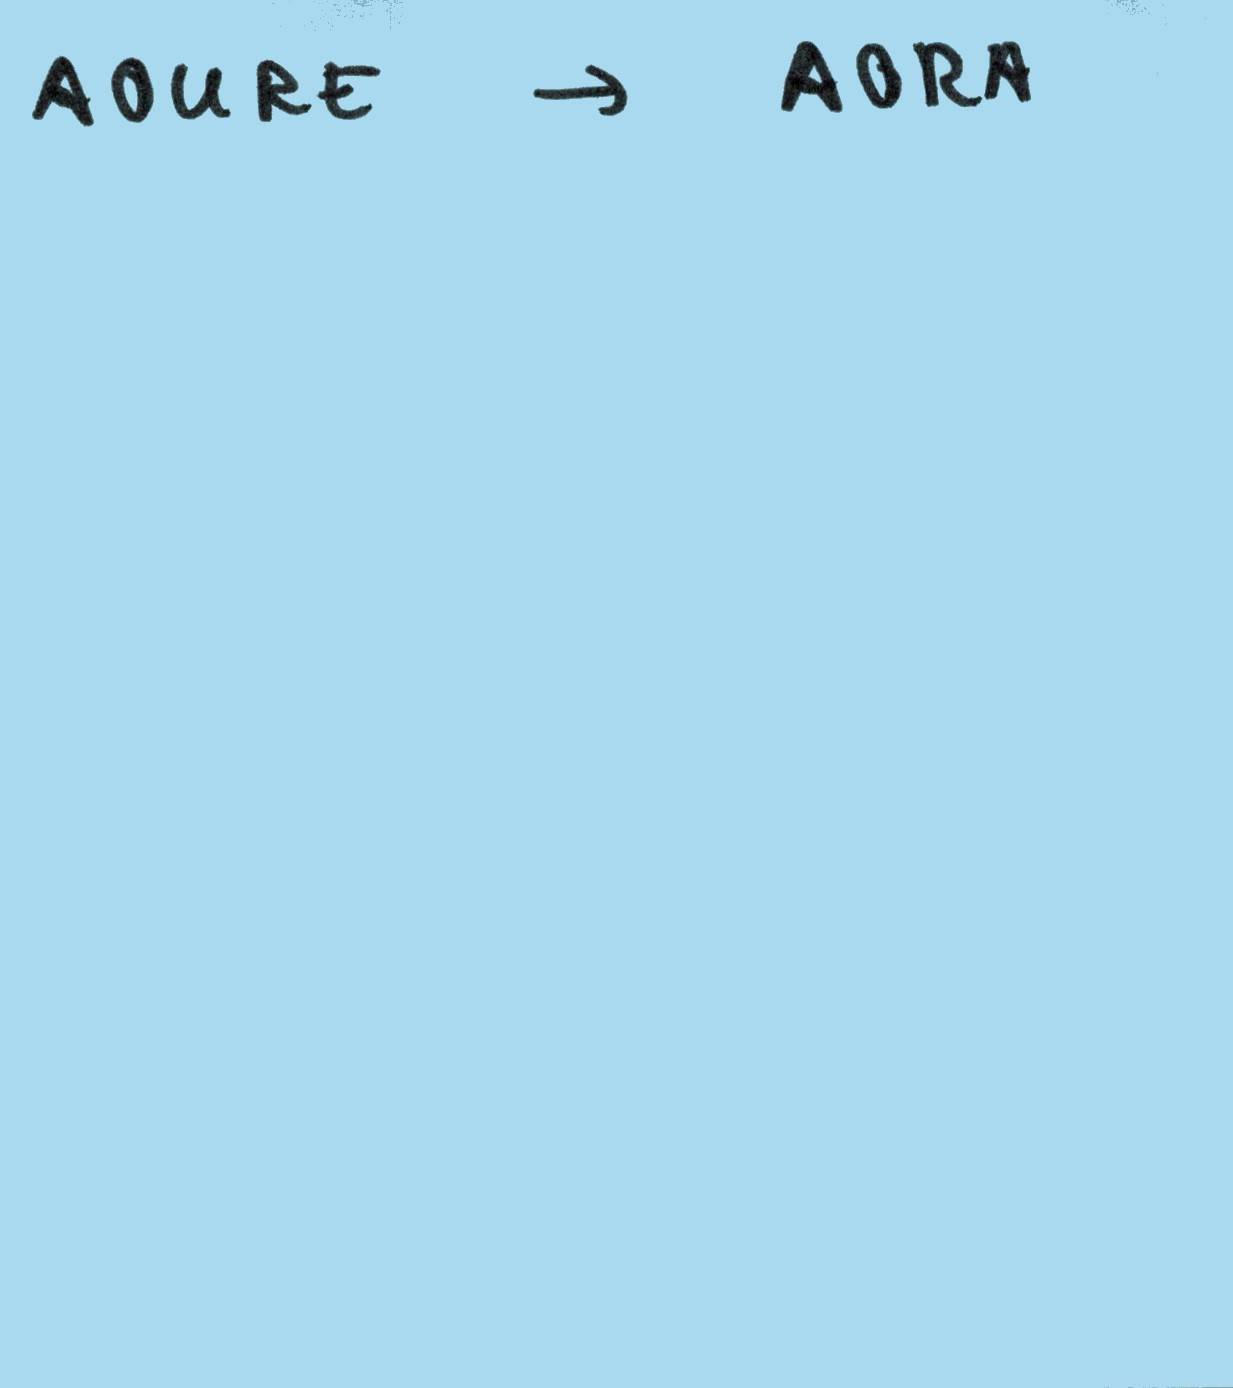 AOURE → AORA